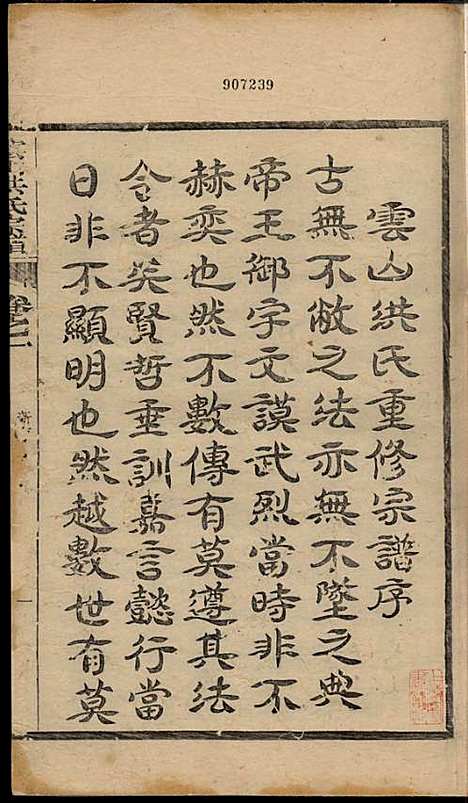 907239
雲山洪氏重修宗譜序
古無不敝之法亦無不墜之典
帝王御宇文謨武烈當時非不
赫奕也然不數傳有莫遵其法
令者矣賢哲垂訓嘉言懿行當
日非不顯明也然越數世有莫
洪氏宗譜
卷之一
一